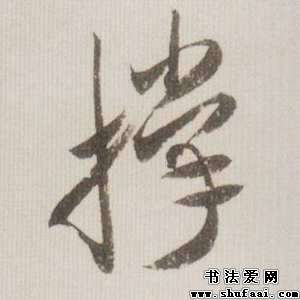 撑
书法爱网
www.shufaai.com